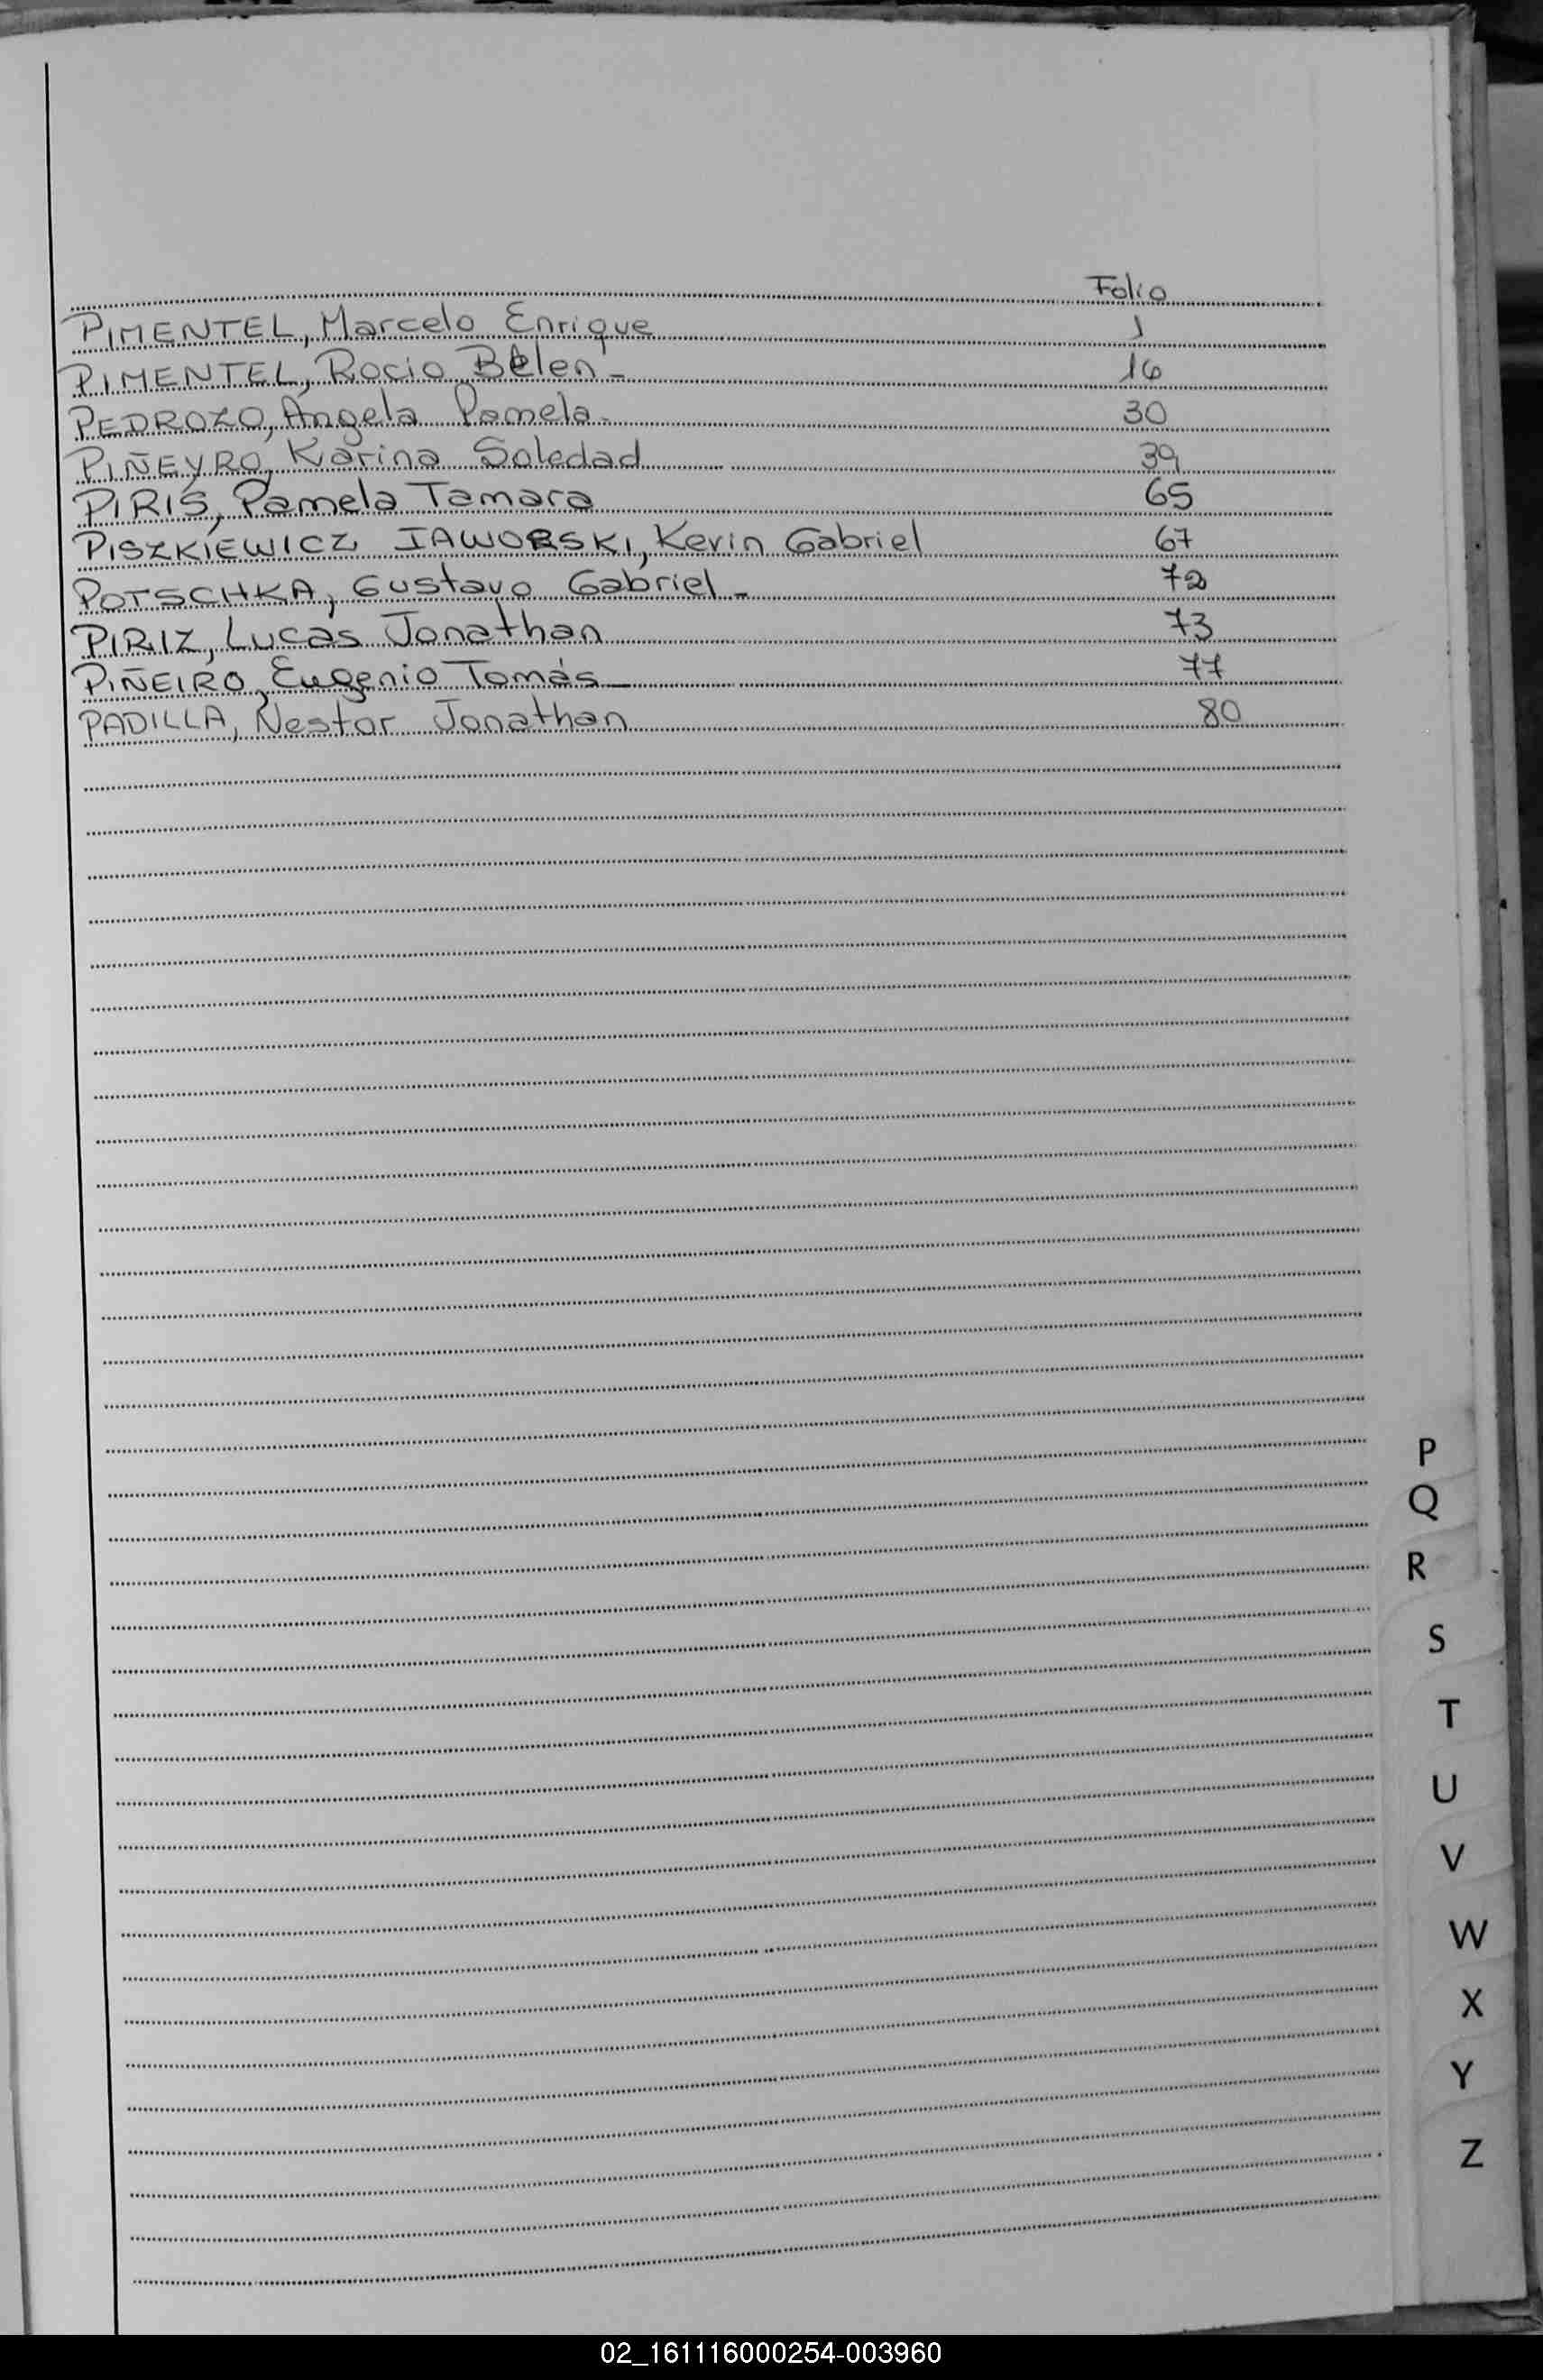 Folio
PIMENTEL, Marcelo Enrique 1
PIMENTEL, Rocio Belen- 16
PEDROZO, Ángela Pamela- 30
PIÑEYRO, Karina Soledad 39
PIRIS, Pamela Tamara 65
PISZKIEWICZ IAWORSKI, Kevin Gabriel 67
POTSCHKA, Gustavo Gabriel- 72
PIRIZ, Lucas Jonathan 73
PIÑEIRO, Eugenio Tomás- 77
PADILLA, Nestor Jonathan 80
P
Q
R
S
T
U
V
W
X
Y
Z
02_161116000254-003960